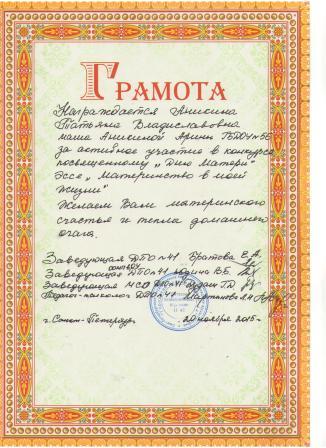 Грамота
Награждается Аникина
Татьяна Владиславовна
мама Аникиной Арины
за активное участие в конкурсе
посвященному „Дню Матери"
Эссе „Материнство в моей
жизни"
Желаем Вам материнского
счастья и тепла домашнего
очага.
Заведующая ДПО №41 Братова Е.А.
Заведующая ДПО №41
Заведующая МСО
Педагог-психолог ДПО №41
г. Санкт-Петербург 20 ноября 2015г.